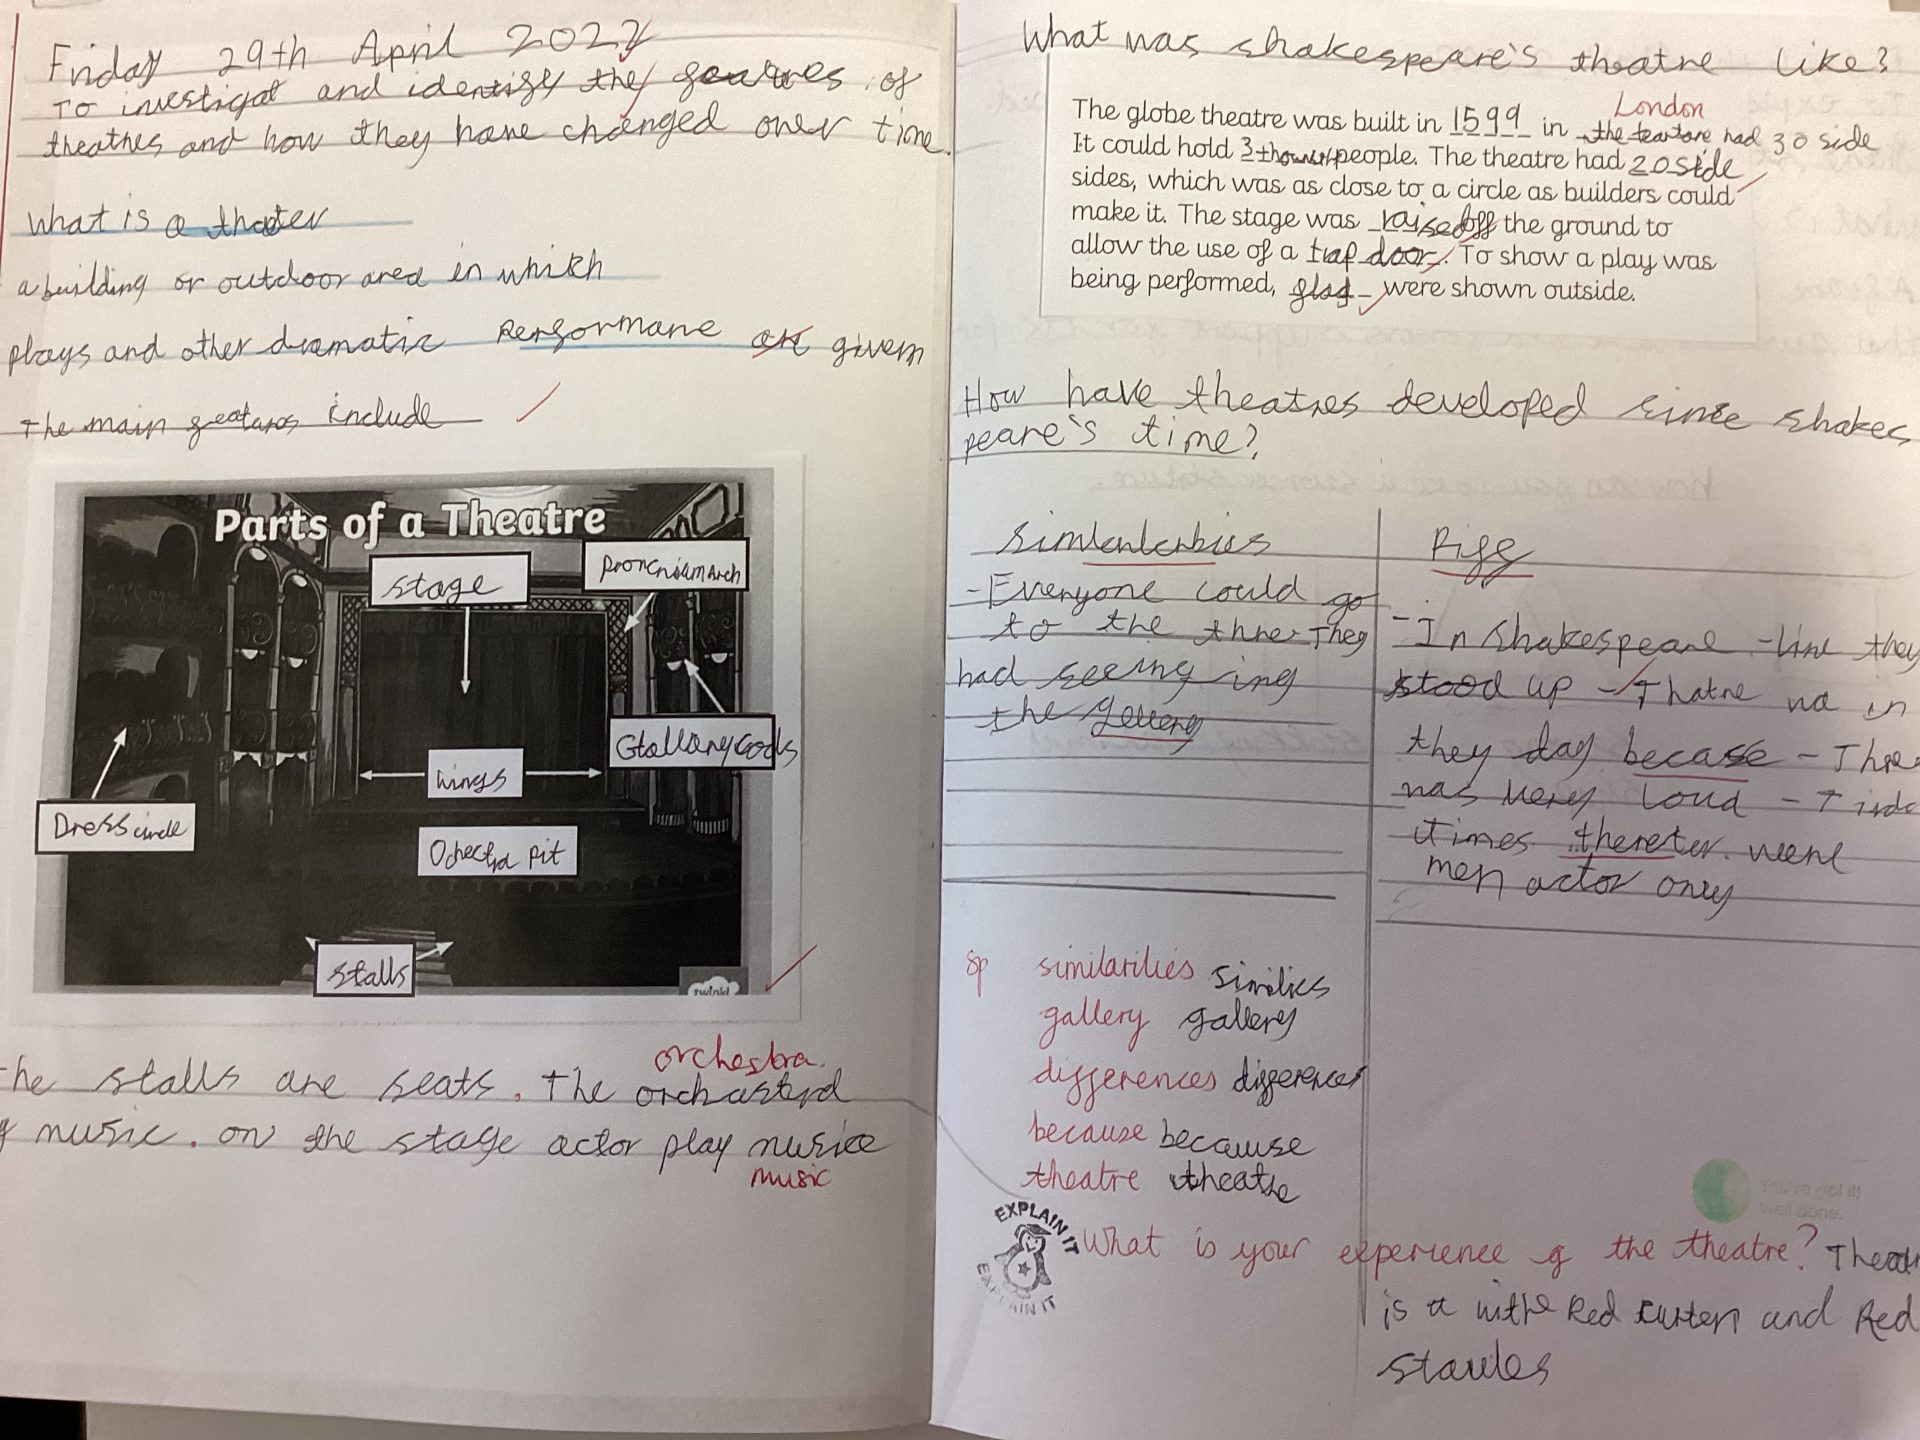 Friday 29th April 2022
To investigat and identify the features of
theatres and how they have changed over time.
What is a theater
a building or outdoor area in which
plays and other dramatic Performane are given
The main featuros include
Parts of a Theatre
stage
proncnism Arch
Gtallarygods
wings
Dress circle
Ochectra Pit
stalls
twinkl
he stalls are seats. The orchasterd
orchestra.
music. on the stage actor play musice
music
What was shakespeare's theatre like?
The globe theatre was built in 1599 in the teartare had 30 side
London
It could hold 3 people. The theatre had 20 side
sides, which was as close to a circle as builders could
make it. The stage was raised off the ground to
allow the use of a trap door. To show a play was
being performed, flag were shown outside.
How have theatres developed since shakes
peare's time?
Simlenlerbies
- Everyone could go
to the thre. They
had seeing ing
the gellery
Diff
- In Shakespeare - time they
stood up - Thatre wa in
they day becase - Thre
was very loud - T
times thereter were
men actor only
sp similarities similies
gallery gallery
differences differences
because becauuse
theatre theatre
You've got it!
Well done.
EXPLAIN IT
EXPLAIN IT
What is your experience of the theatre? Theatr
is a withe Red curten and Red
staules